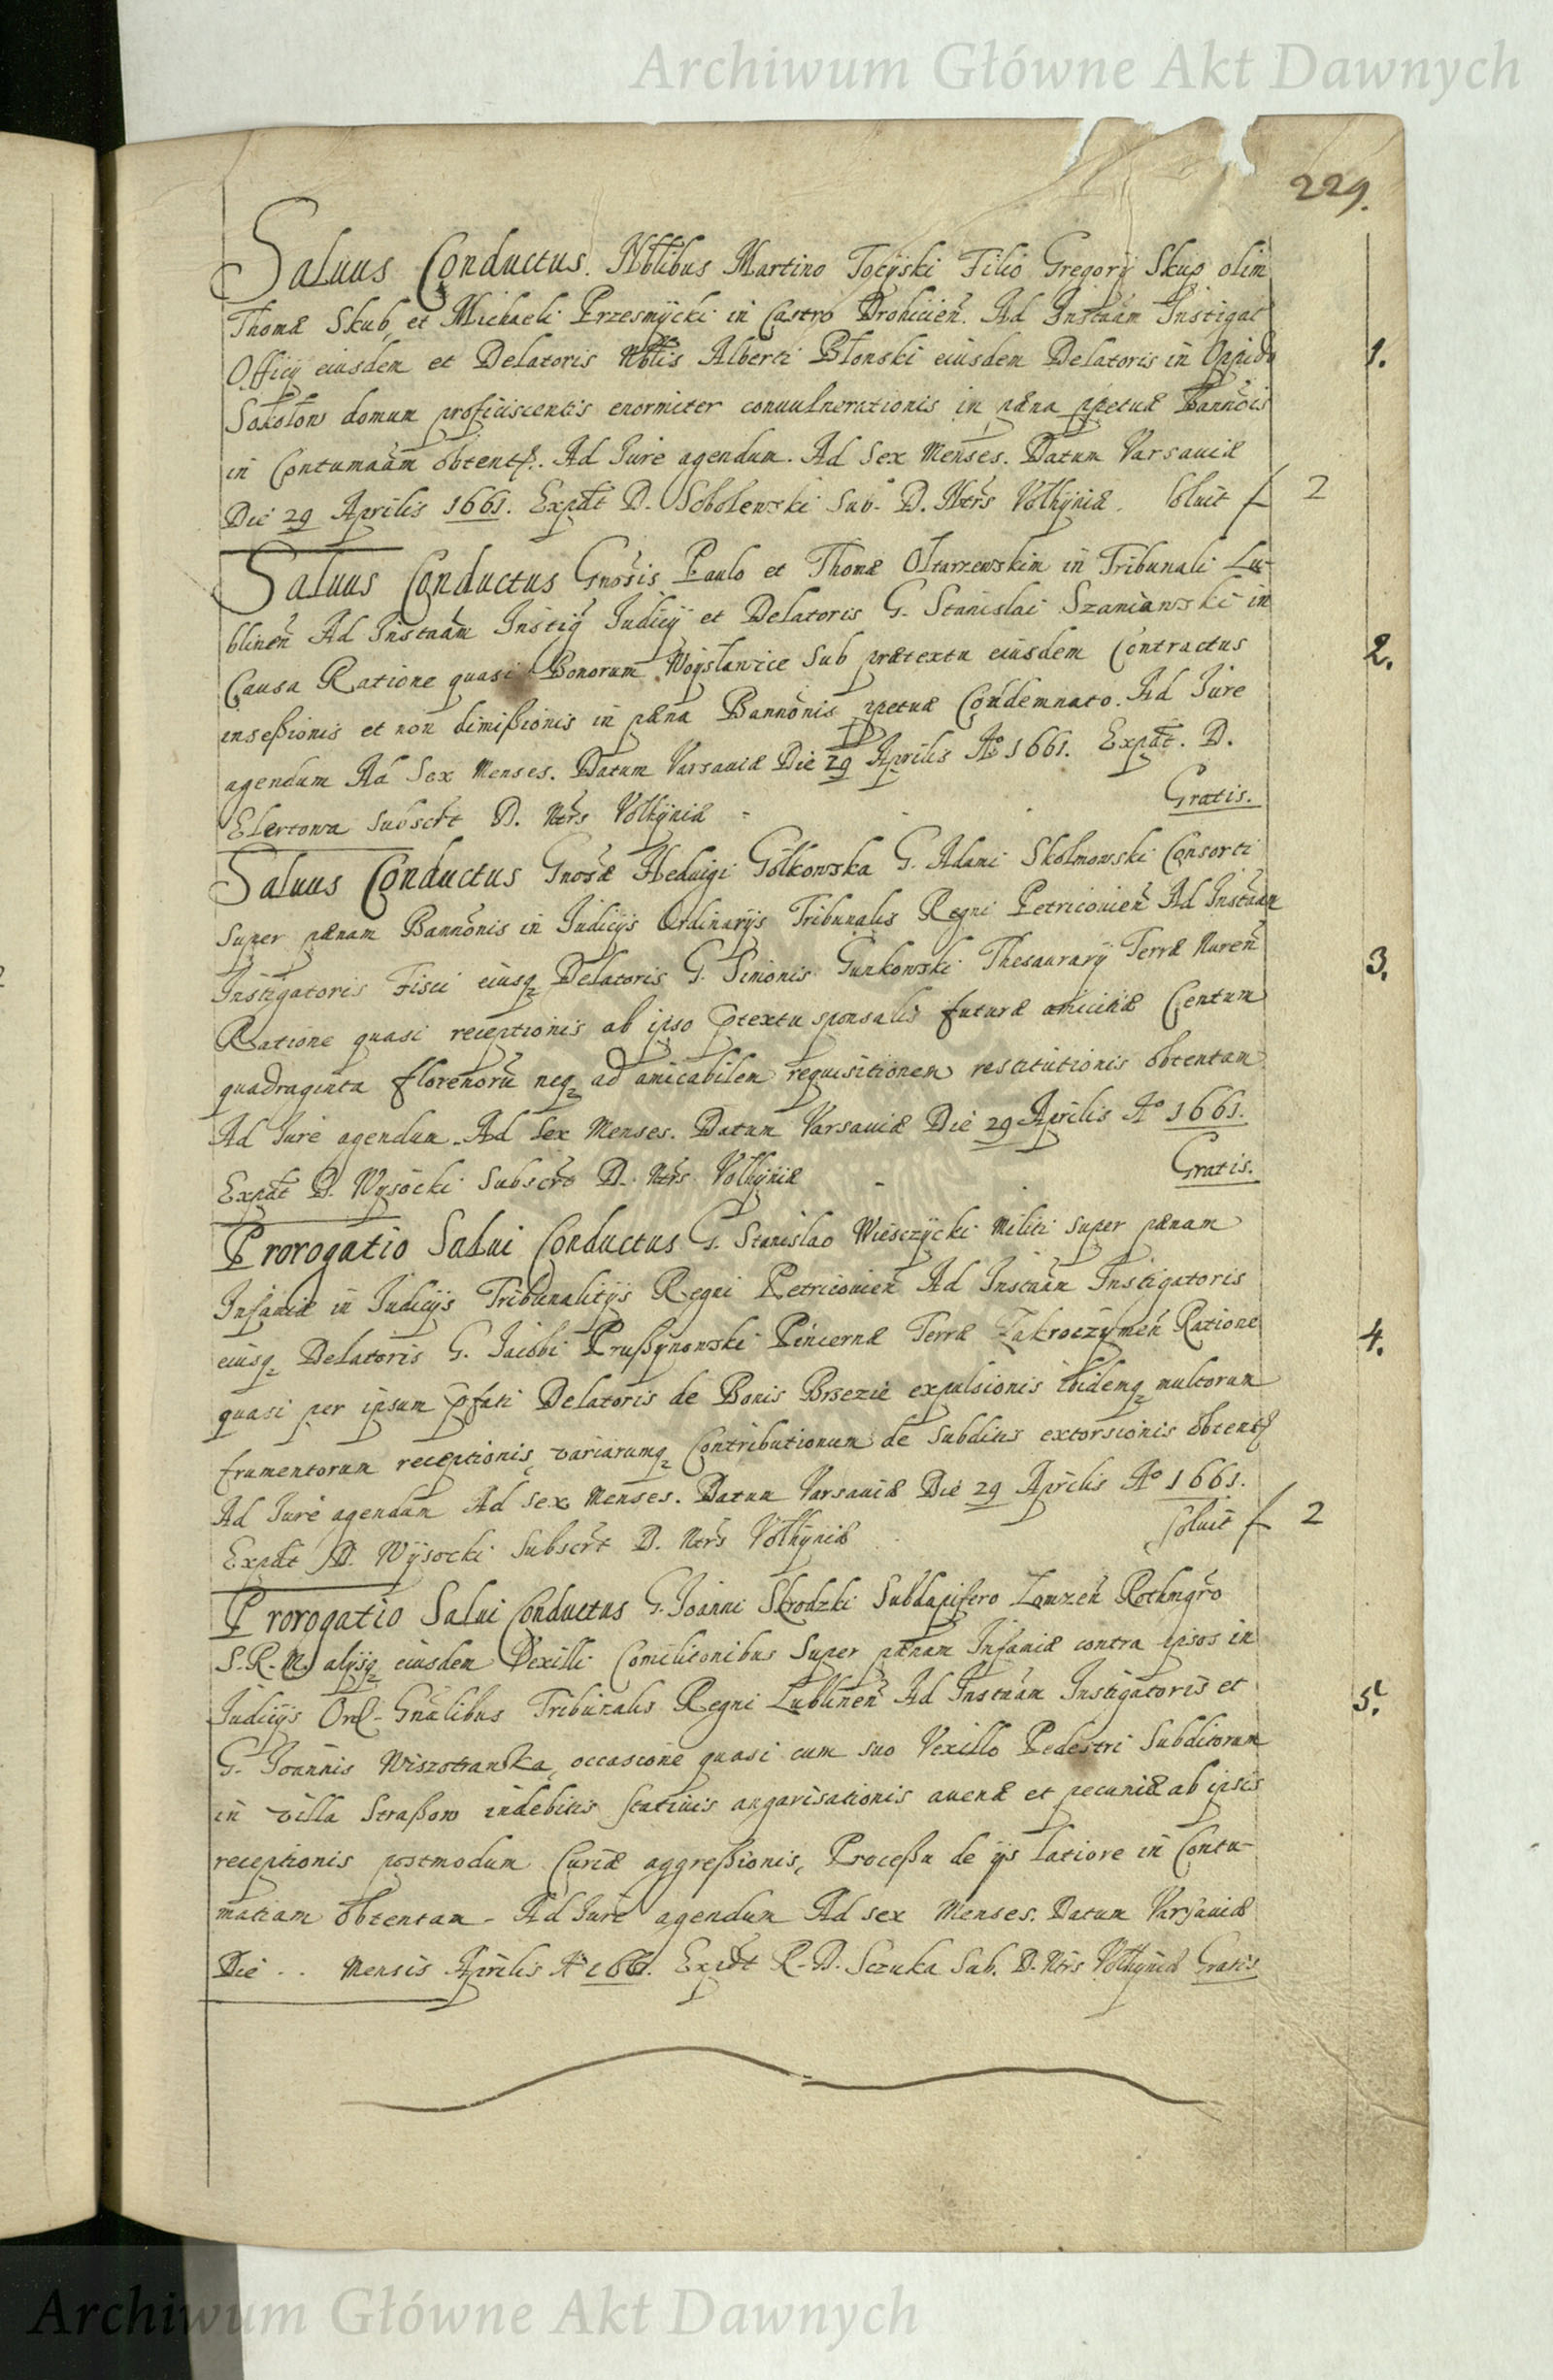 Archiwum Główne Akt Dawnych
229.
Saluus Conductus. Nblibus Martino Tocÿski Filio Gregorÿ Skup olim
Thomæ Skub, et Michaeli Przesmÿcki in Castro Drohicien̄. Ad Instāām Instigat
Officÿ eiusdem et Delatoris Nblis Alberti Błonski eiusdem Delatoris in Oppido 1.
Sokołow domum proficiscentis enormiter conuulnerationis in pæna ppetuæ Bannōis
in Contumaām obtent. Ad Jure agendum. Ad Sex Menses. Datum Varsauiæ
Die 29 Aprilis 1661. Expdt D. Sobolewski Sub. D. Ntrs Volhÿniæ. Soluit f 2
Saluus Conductus Gnosis Paulo et Thomæ Ołtarzewskim in Tribunali Lu-
blinen̄ Ad Instāām Instig Judicÿ et Delatoris G. Stanislai Szaniawski in
Causa Ratione quasi Bonorum Woÿsławice Sub prætextu eiusdem Contractus 2.
inseßionis et non dimißionis in pæna Bannōnis ppetuæ Condemnato. Ad Jure
agendum Ad Sex Menses. Datum Varsauiæ Die 29 Aprilis Ao 1661. Expdt. D.
Elertowa Subscrt D. Ntrs Volhÿniæ - Gratis.
Saluus Conductus Gnosæ Heduigi Gołkowska G. Adami Skolmowski Consorti
Super pænam Bannōnis in Judicÿs Ordinarÿs Tribunalis Regni Petricouien̄ Ad Instāām
Instigatoris Fisci eiusq Delatoris G. Simonis Gunkowski Thesaurarÿ Terræ Nuren̄ 3.
Ratione quasi receptionis ab ipso ptextu sponsalis futuræ amicitiæ Centum
quadraginta florenorū neq ad amicabilem requisitionem restitutionis obtentam
Ad Jure agendum. Ad Sex Menses. Datum Varsauiæ Die 29 Aprilis Ao 1661.
Expdt D. Wysocki Subscrt D. Ntrs Volhÿniæ - Gratis.
Prorogatio Salui Conductus G. Stanislao Wiesczÿcki Militi Super pænam
Infamiæ in Judicÿs Tribunalitÿs Regni Petricouien̄ Ad Instāām Instigatoris
eiusq Delatoris G. Jacobi Prußÿnowski Pincernæ Terræ Zakroczÿmen̄ Ratione 4.
quasi per ipsum pfati Delatoris de Bonis Brzezie expulsionis ibidemq multorum
frumentorum receptionis, variarumq Contributionum de Subditis extorsionis obtent
Ad Jure agendum Ad Sex Menses. Datum Varsauiæ Die 29 Aprilis Ao 1661.
Expdt D. Wÿsocki Subscrt D. Ntrs Volhÿniæ Soluit f 2
Prorogatio Salui Conductus G. Joanni Skrodzki Subdapifero Lomzen̄ Rothmgro
S. R. M. alÿsq eiusdem Vexilli Comilitonibus Super pænam Infamiæ contra ipsos in
Judicÿs Ord. Gnālibus Tribunalis Regni Lublinen̄ Ad Instāām Instigatoris et 5.
G. Joannis Wiszotrawka, occasione quasi cum suo Vexillo Pedestri Subditorum
in villa Straßow indebitis statiuis angarisationis auenæ et pecuniæ ab ipsis
receptionis postmodum Curiæ aggreßionis, Proceßu de ÿs latiore in Contu-
matiam obtentam. Ad Jure agendum Ad sex Menses. Datum Varsauiæ
Die . . Mensis Aprilis Ao 1661. Expdt R. D. Sczuka Sub. D. Ntrs Volhÿniæ Gratis
Archiwum Główne Akt Dawnych